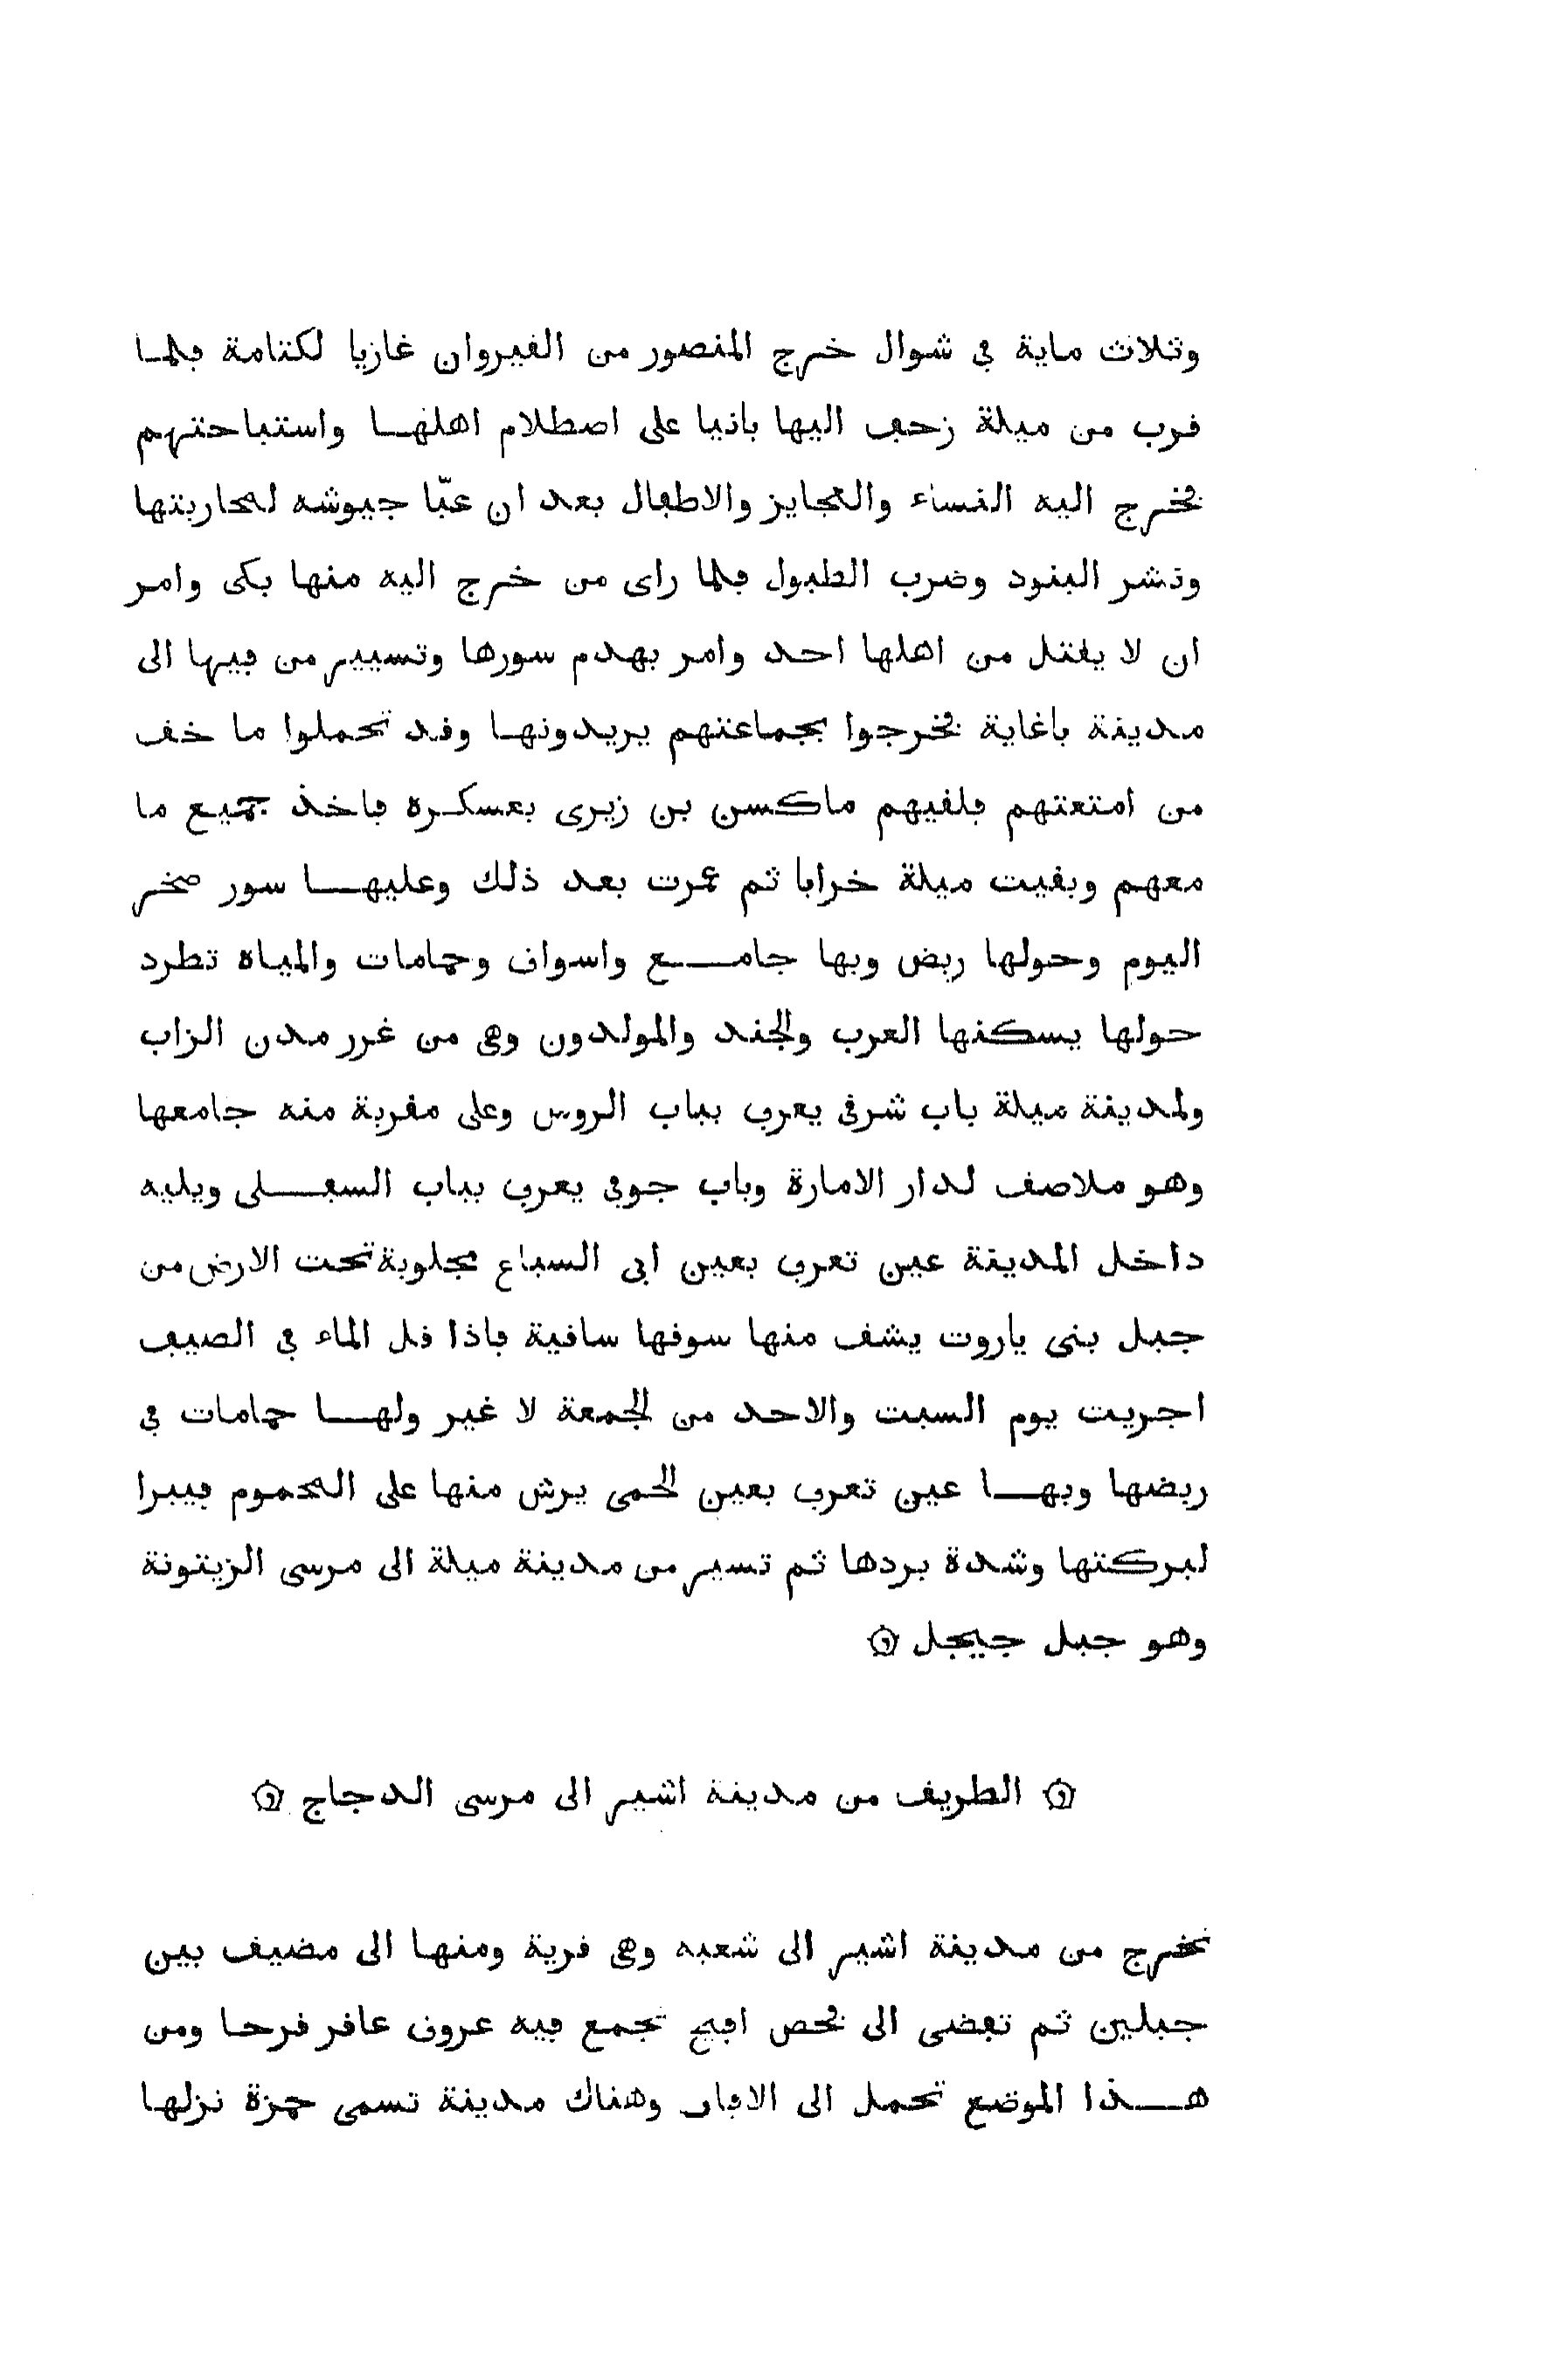 وثلاث ماية في شوال خرج المنصور من القيروان غازيا لكتامة فلما
قرب من ميلة زحف اليها بانيا على اصطلام اهلها واستباحتهم
فخرج اليه النساء والعجايز والاطفال بعد ان عبّا جيوشه لمحاربتها
ونشر البنود وضرب الطبول فلما راى من خرج اليه منها بكى وامر
ان لا يقتل من اهلها احد وامر بهدم سورها وتسيير من فيها الى
مدينة باغاية فخرجوا بجماعتهم يريدونها وقد تحملوا ما خف
من امتعتهم فلقيهم ماكسن بن زيرى بعسكره فاخذ جميع ما
معهم وبقيت ميلة خرابا ثم عمرت بعد ذلك وعليها سور صخر
اليوم وحولها ربض وبها جامع واسواق وحمامات والمياه تطرد
حولها يسكنها العرب والجند والمولدون وهى من غرر مدن الزاب
ولمدينة ميلة باب شرقى يعرف بباب الروس وعلى مقربة منه جامعها
وهو ملاصق لدار الامارة وباب جوفى يعرف بباب السفلى ويليه
داخل المدينة عين تعرف بعين ابى السباع مجلوبة تحت الارض من
جبل بنى ياروت يشق منها سوقها ساقية فاذا قل الماء في الصيف
اجريت يوم السبت والاحد من الجمعة لا غير ولها حمامات في
ربضها وبها عين تعرف بعين الحمى يرش منها على المحموم فيبرا
لبركتها وشدة بردها ثم تسير من مدينة ميلة الى مرسى الزيتونة
وهو جبل جيجل ۞
۞ الطريق من مدينة اشير الى مرسى الدجاج ۞
تخرج من مدينة اشير الى شعبه وهى قرية ومنها الى مضيق بين
جبلين ثم تفضى الى فحص افيح تجمع فيه عروق عاقر قرحا ومن
هذا الموضع تحمل الى الافاق وهناك مدينة تسمى حمزة نزلها